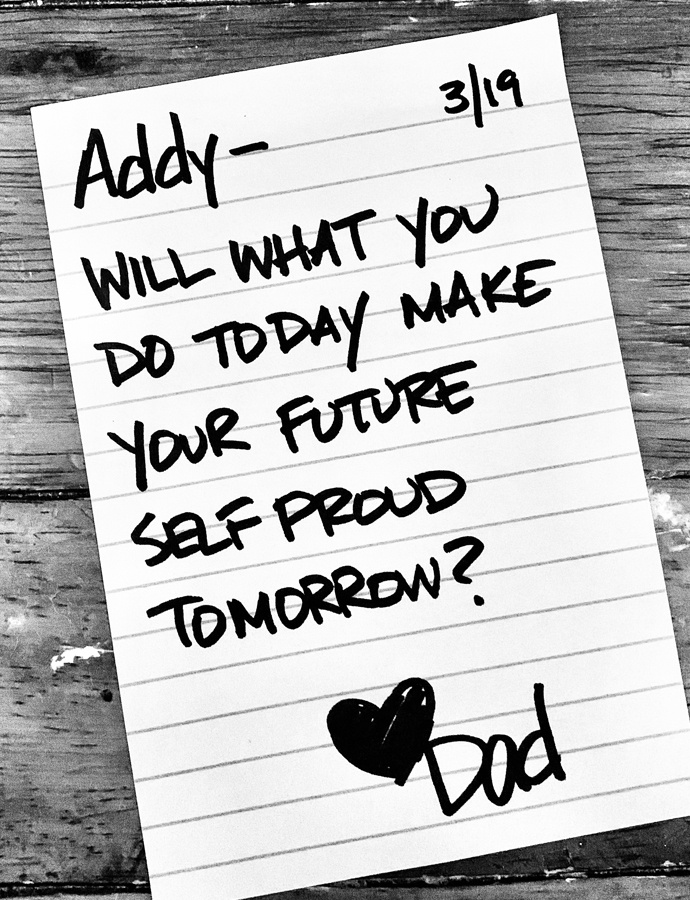 3/19
Addy-
WILL WHAT YOU
DO TODAY MAKE
YOUR FUTURE
SELF PROUD
TOMORROW?
Dad